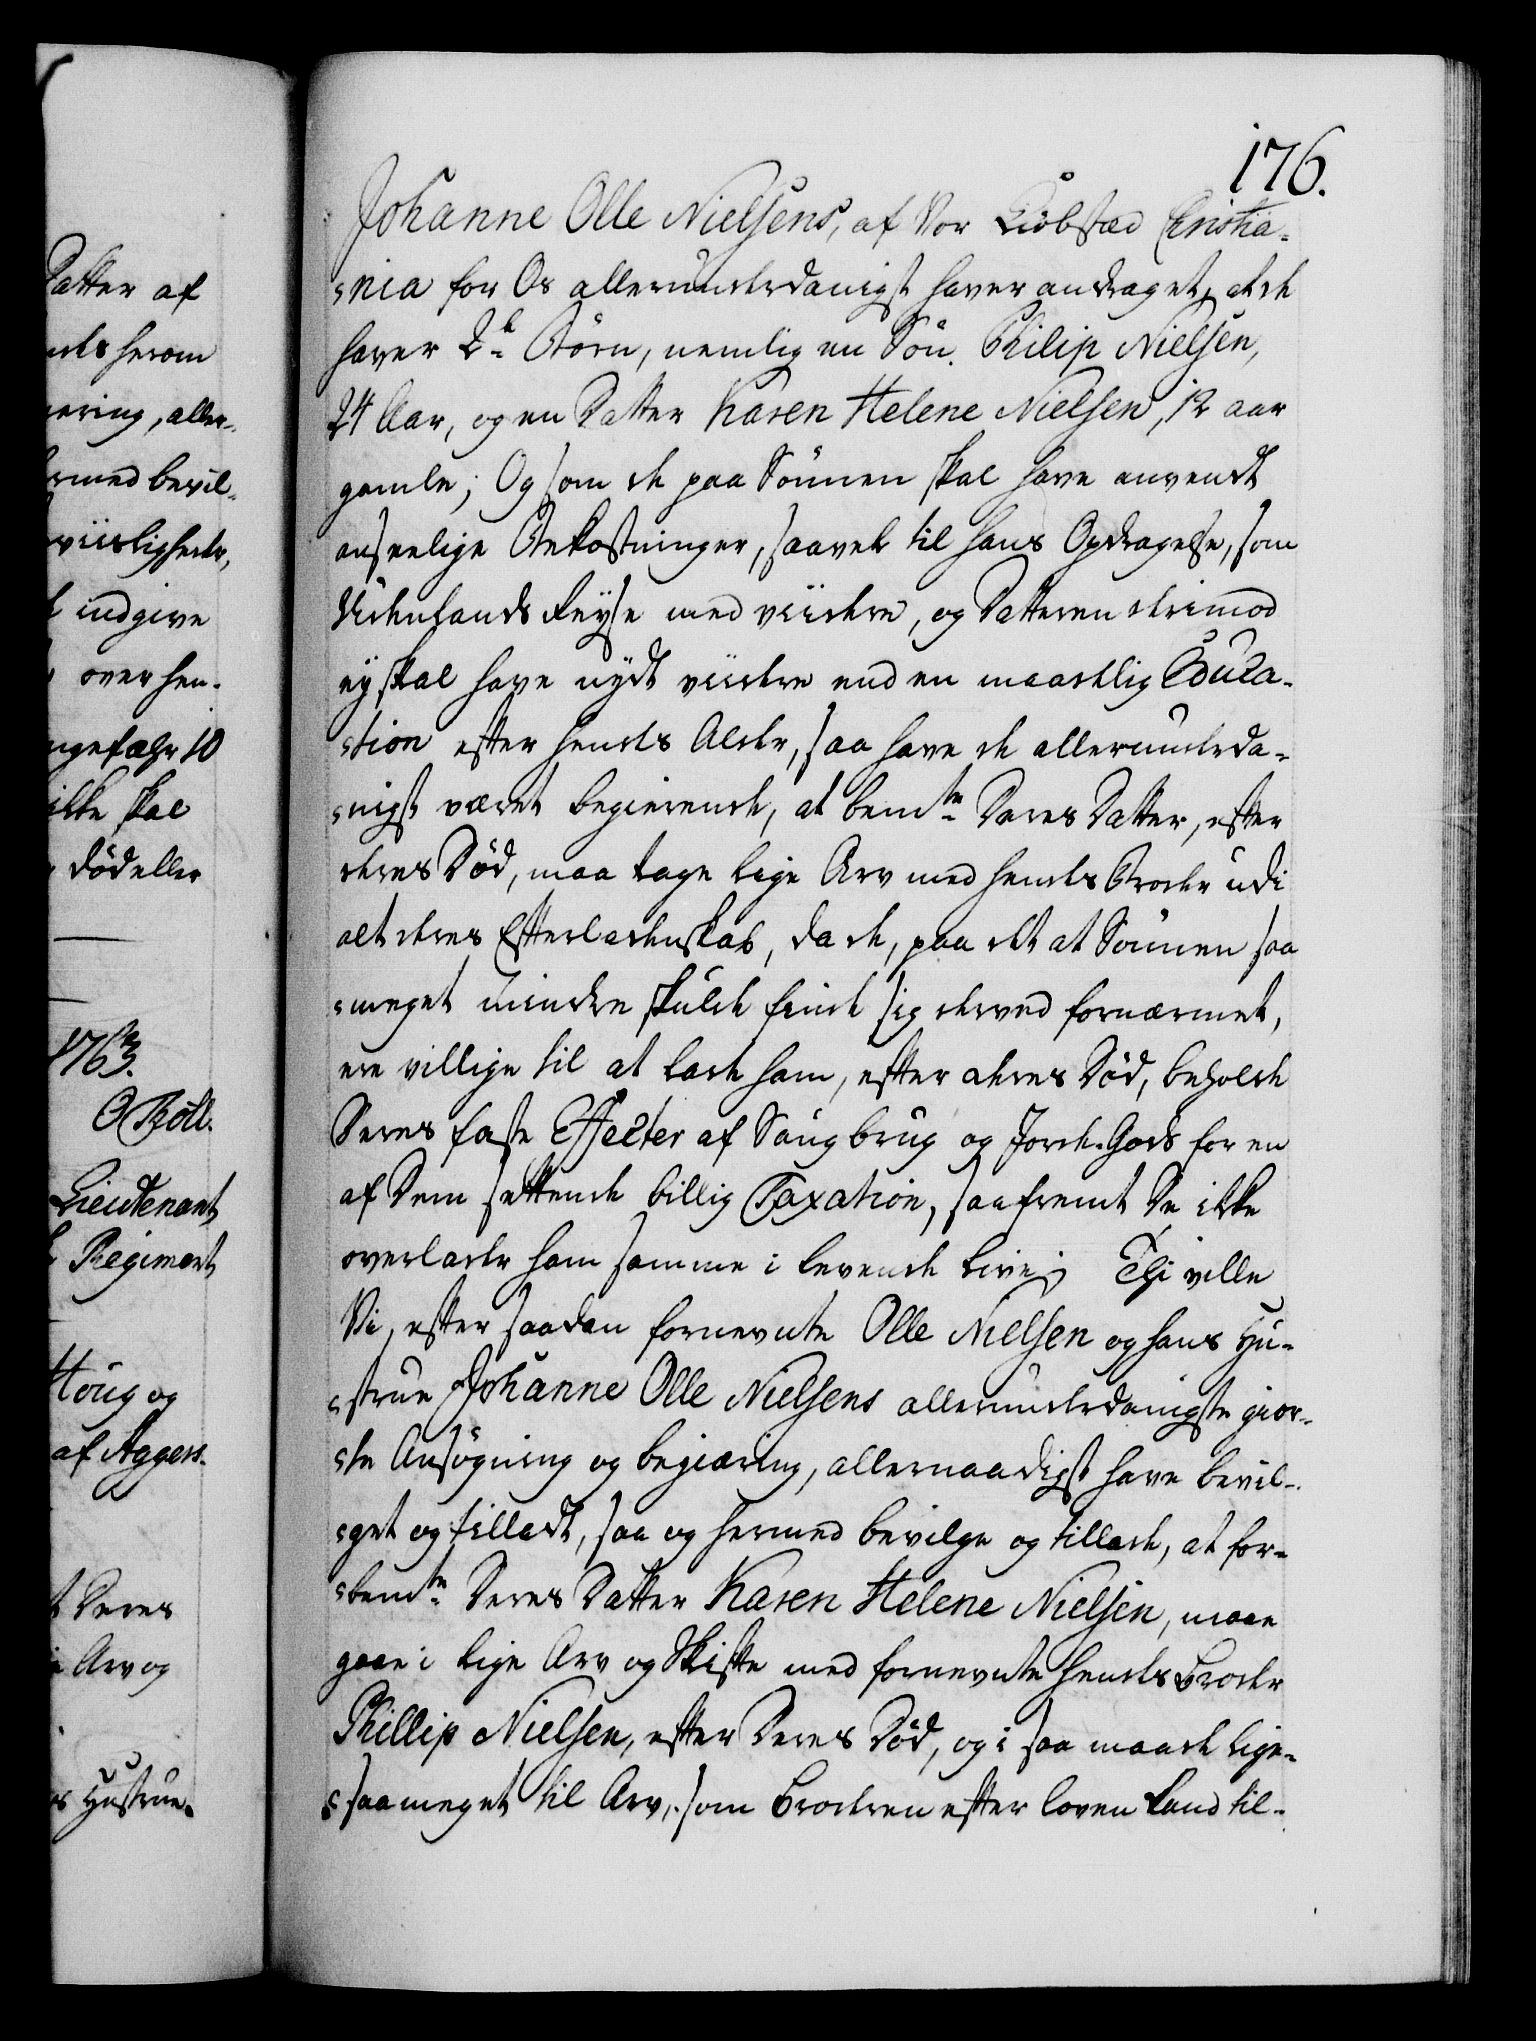 Datter af
herom
æring, aller-
ermed bevil-
viisligheder,
indgive
over hen-
ngefæhr 10
ikke skal
død eller
1763.
O Bøll.
Lieutenant
Regiment
Houg og
af Aggers-
Deres
Arv og
Hustrue.
176.
Johanne Olle Nielsens, af Vor Kiøbstad Christia-
-nia for Os allerunderdanigst haver andraget, at de
haver 2de Børn, nemlig en Søn Philip Nielsen,
24 Aar, og en Datter Karen Helene Nielsen, 12 aar
gamle; Og som de paa Sønnen skal have anvendt
anseelige Bekostninger, saavel til hans Opdragelse, som
Udenlands Reyse med viidere, og Datteren derimod
ey skal have nydt viidere end en maadelig Educa-
-tion efter hendes Alder, saa have de allerunderda-
-nigst været begierende, at bemte Deres Datter, efter
deres Død, maa tage lige Arv med hendes Broder udi
alt deres Efterladenskab, da de, paa det at Sønnen saa
-meget mindre skulde finde sig derved fornærmet,
ere villige til at lade ham, efter deres Død, beholde
Deres faste Effecter af Saugbrug og Jorde-Gods for en
af Dem settende billig Taxation, saafremt De ikke
overlader ham samme i levende Live; Thi ville
Vi, efter saadan fornevnte Olle Nielsen og hans Hu-
-strue Johanne Olle Nielsens allerunderdanigste gior-
-de Ansøgning og begiæring, allernaadigst have bevil-
-get og tilladt, saa og hermed bevilge og tillade, at for-
-bemte Deres Datter Karen Helene Nielsen, maae
gaae i lige Arv og Skifte med fornevnte hendes Broder
Phillip Nielsen, efter Deres Død, og i saa maade lige-
-saameget til Arv, som Broderen efter loven kand til-